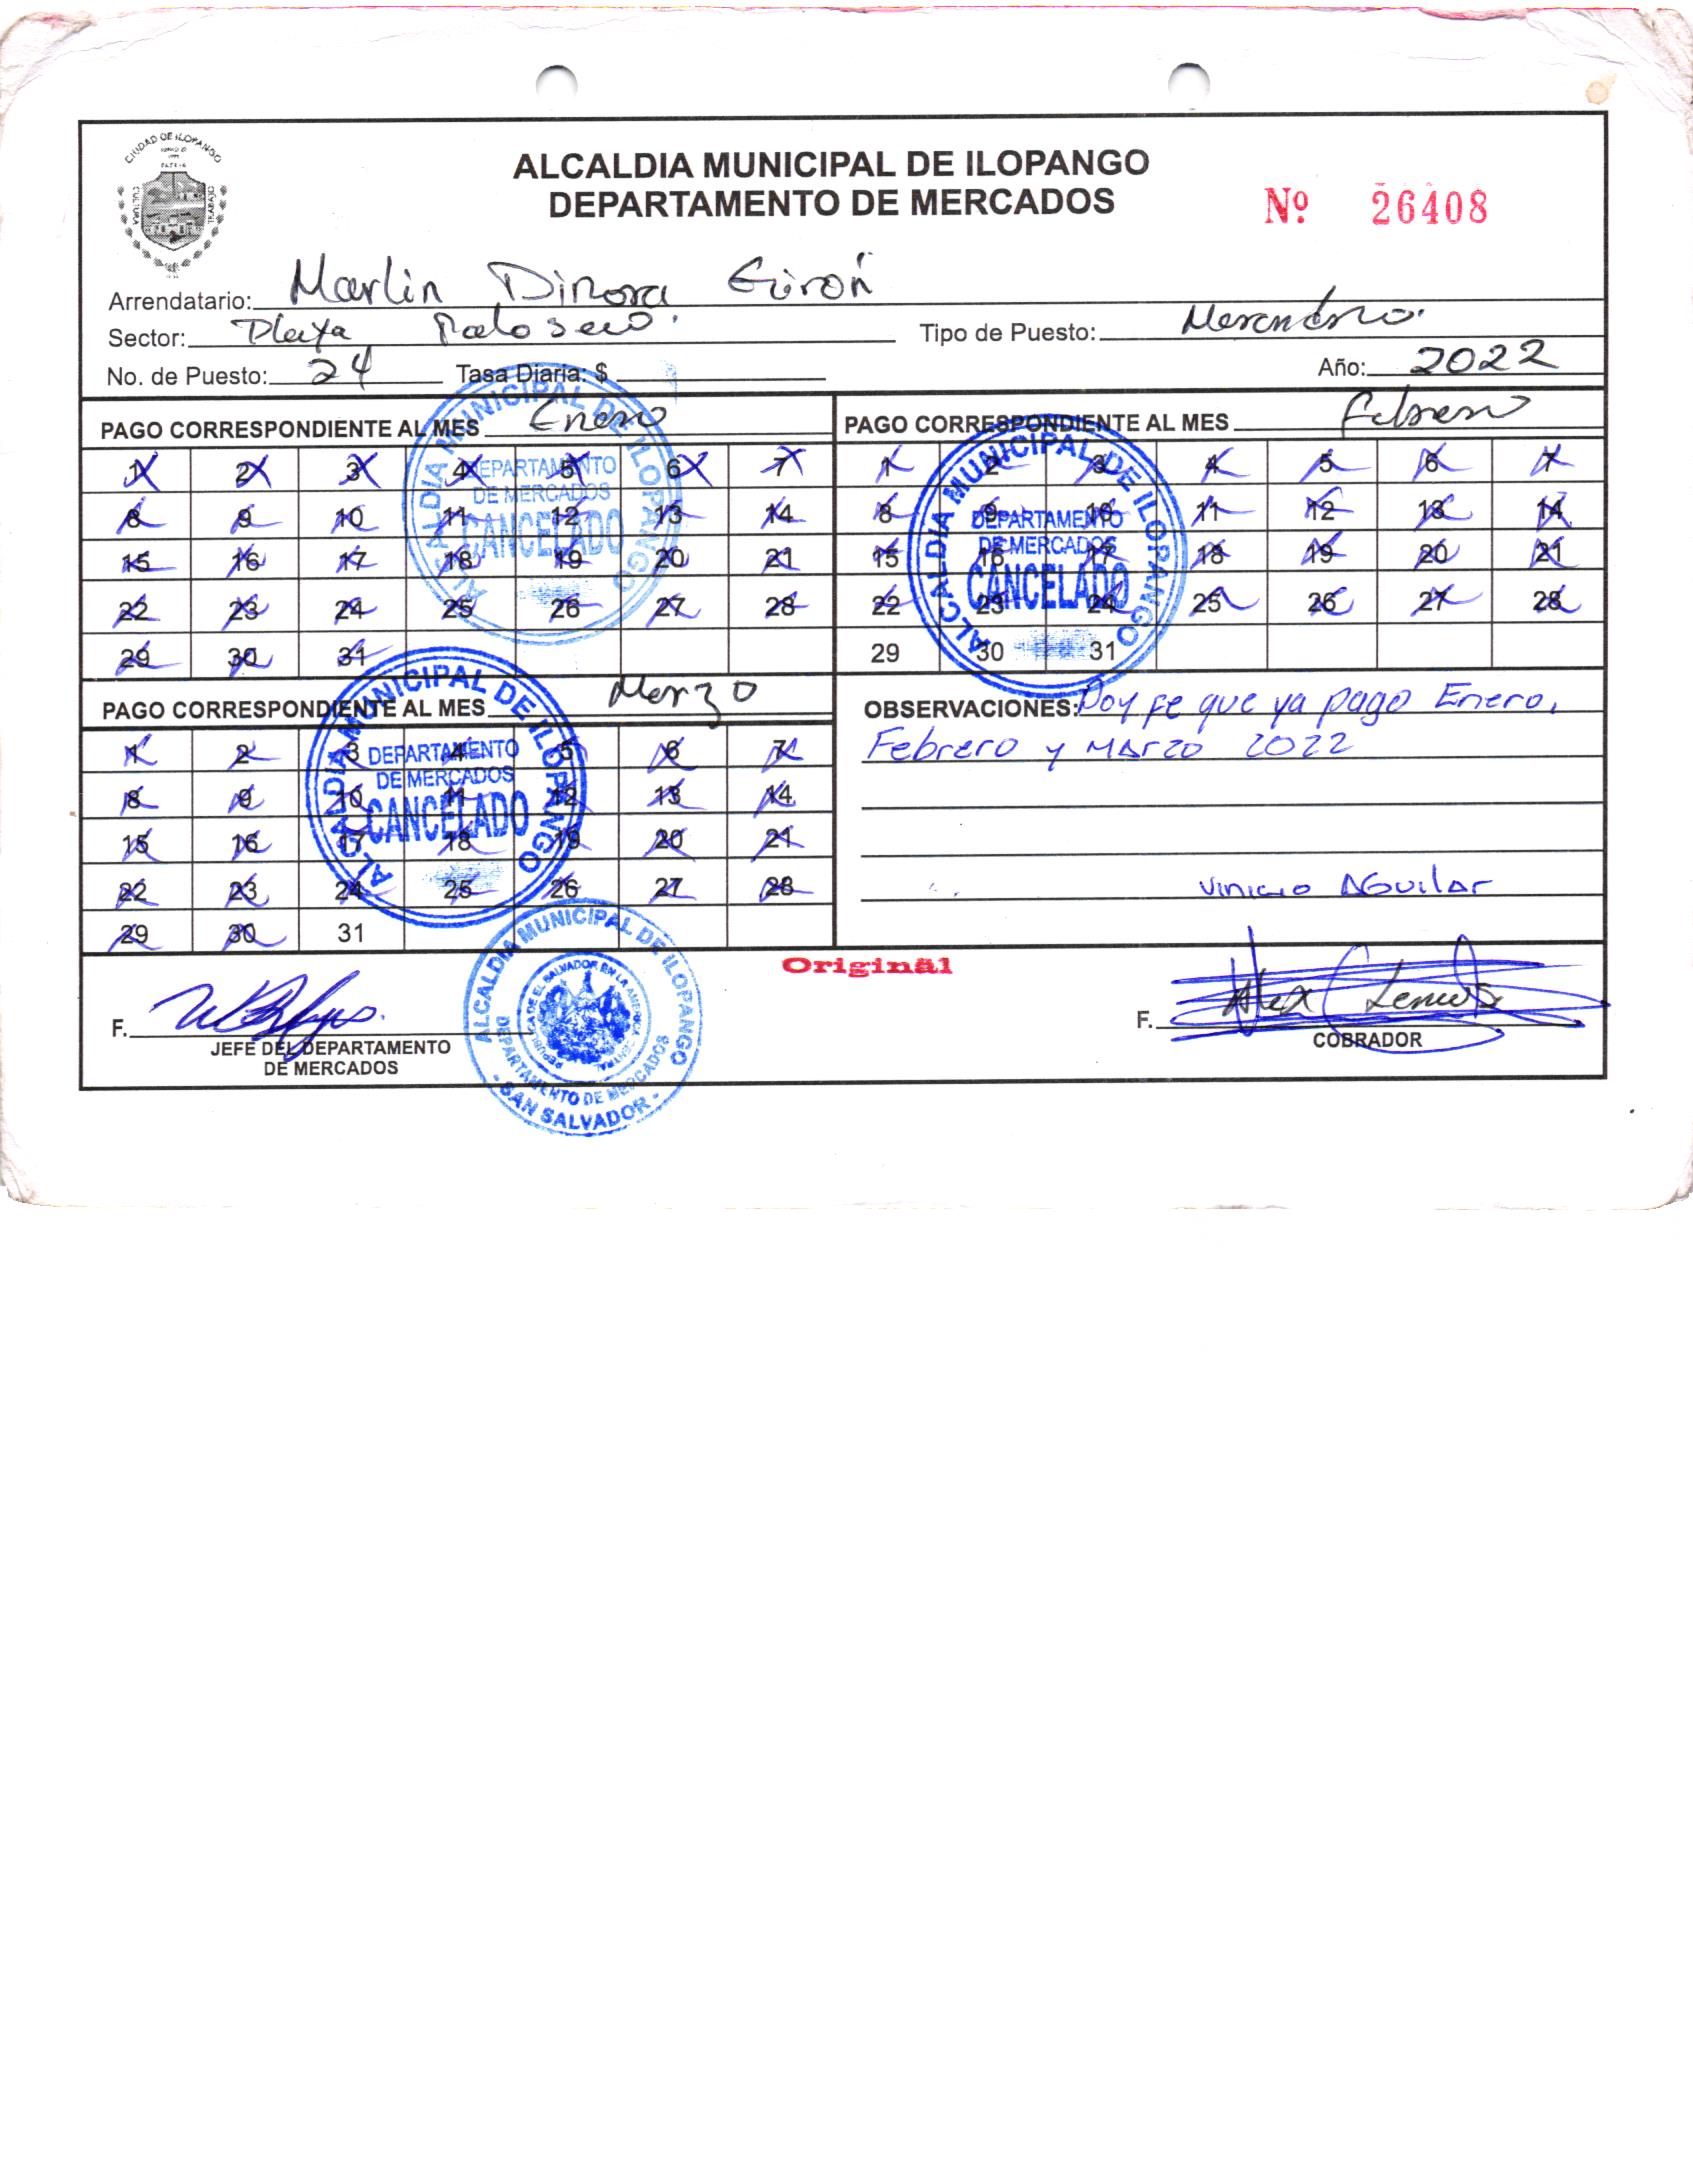 CIUDAD DE ILOPANGO
CULTURA
TRABAJO
ALCALDIA MUNICIPAL DE ILOPANGO
DEPARTAMENTO DE MERCADOS
Nº 26408
Arrendatario: Marlin Dinora Girón
Sector: Playa Palo seco. Tipo de Puesto:
No. de Puesto: 24 Tasa Diaria: $ Año: 2022
PAGO CORRESPONDIENTE AL MES Enero
1 2 3 4 5 6 7
8 9 10 11 12 13 14
15 16 17 18 19 20 21
22 23 24 25 26 27 28
29 30 31
ALCALDIA MUNICIPAL DE ILOPANGO
DEPARTAMENTO
DE MERCADOS
CANCELADO
PAGO CORRESPONDIENTE AL MES Febrero
1 2 3 4 5 6 7
8 9 10 11 12 13 14
15 16 17 18 19 20 21
22 23 24 25 26 27 28
29 30 31
ALCALDIA MUNICIPAL DE ILOPANGO
DEPARTAMENTO
DE MERCADOS
CANCELADO
PAGO CORRESPONDIENTE AL MES Marzo
1 2 3 4 5 6 7
8 9 10 11 12 13 14
15 16 17 18 19 20 21
22 23 24 25 26 27 28
29 30 31
ALCALDIA MUNICIPAL DE ILOPANGO
DEPARTAMENTO
DE MERCADOS
CANCELADO
OBSERVACIONES: Doy fe que ya pago Enero,
Febrero y Marzo 2022
Vinicio Aguilar
Original
F.
JEFE DEL DEPARTAMENTO
DE MERCADOS
ALCALDIA MUNICIPAL DE ILOPANGO
DEPARTAMENTO DE MERCADOS
- SAN SALVADOR -
F. Alex Lemus
COBRADOR